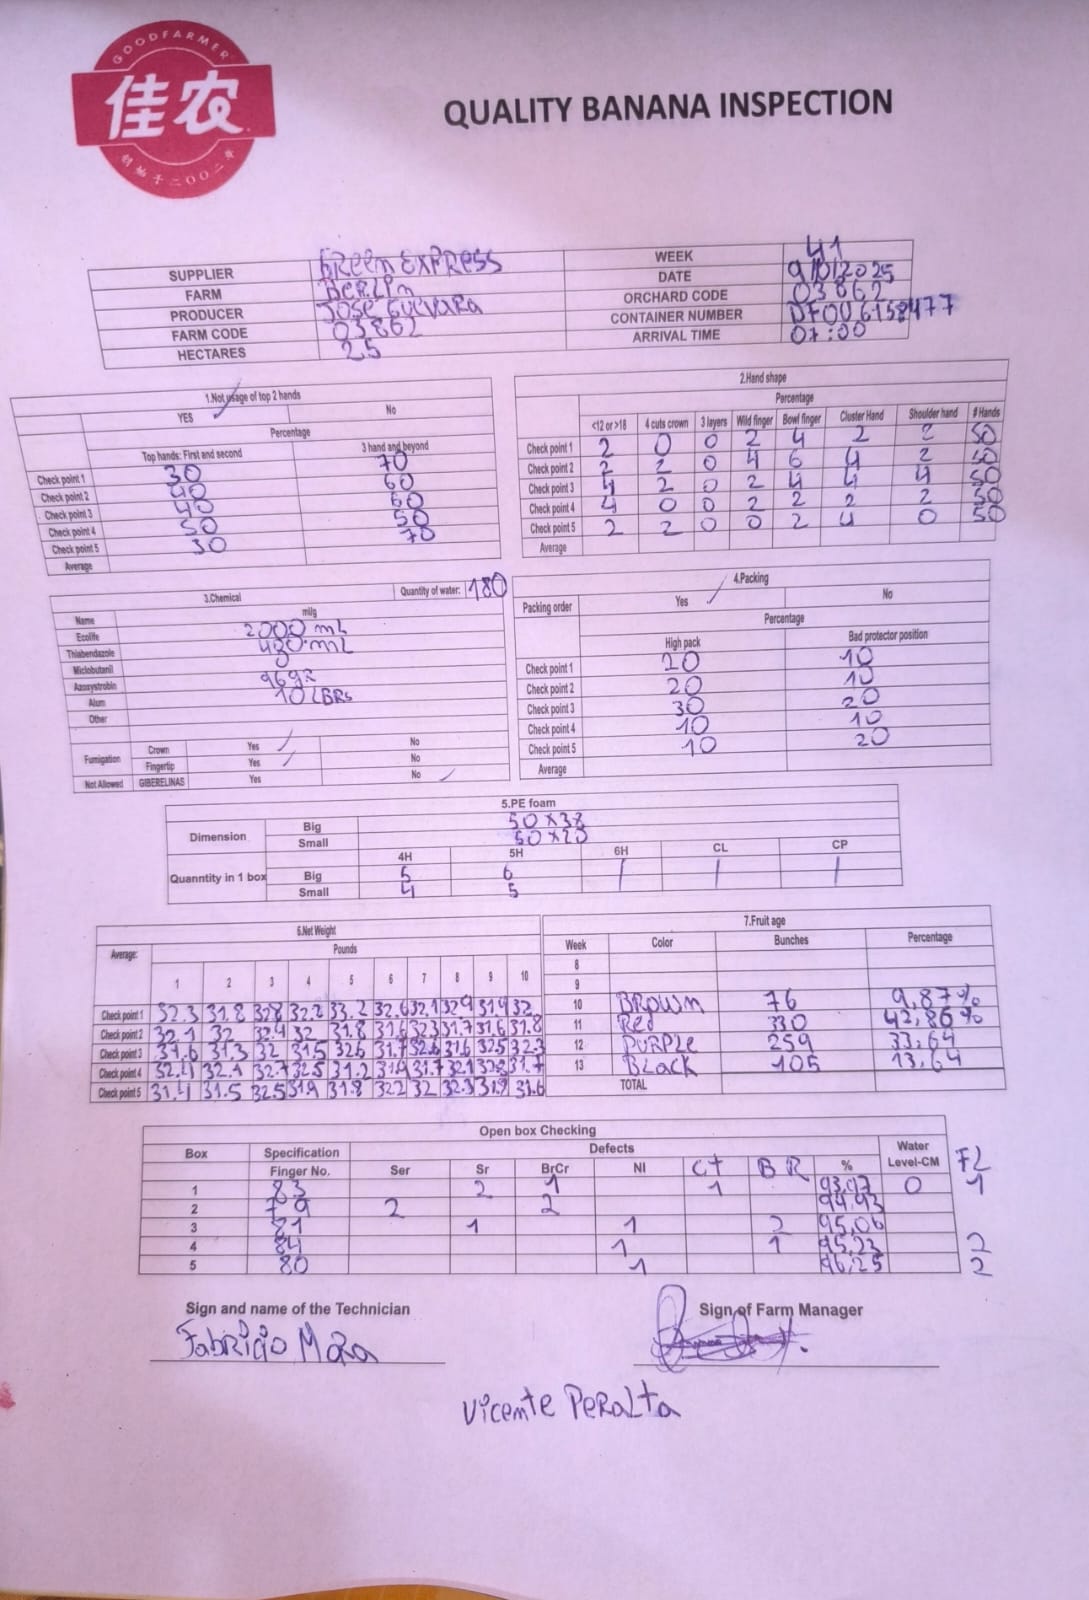 GOODFARMER
佳农
创始于二〇〇二年
QUALITY BANANA INSPECTION
SUPPLIER GReen EXPRESS WEEK 41
FARM BeRLin DATE 9/10/2025
PRODUCER JOSE GUEVARA ORCHARD CODE 03862
FARM CODE 03862 CONTAINER NUMBER DFOU6158477
HECTARES 25 ARRIVAL TIME 07:00
1.Not usage of top 2 hands
YES ✓ No
Percentage
Top hands: First and second 3 hand and beyond
Check point 1 30 70
Check point 2 40 60
Check point 3 40 60
Check point 4 50 50
Check point 5 30 70
Average
2.Hand shape
Percentage
<12 or >18 4 cuts crown 3 layers Wild finger Bowl finger Cluster Hand Shoulder hand # Hands
Check point 1 2 0 0 2 4 2 2 50
Check point 2 2 2 0 4 6 4 2 50
Check point 3 4 2 0 2 4 4 4 50
Check point 4 4 0 0 2 2 2 2 50
Check point 5 2 2 0 0 2 4 0 50
Average
3.Chemical Quantity of water: 180
Name ml/g
Ecolife 2000 mL
Thiabendazole 480 mL
Miclobutanil 0
Azoxystrobin 96gr
Alum 10 LBRs
Other
Fumigation Crown Yes ✓ No
Fingertip Yes ✓ No
Not Allowed GIBERELINAS Yes No ✓
4.Packing
Packing order Yes ✓ No
Percentage
High pack Bad protector position
Check point 1 20 10
Check point 2 20 10
Check point 3 30 20
Check point 4 10 10
Check point 5 10 20
Average
5.PE foam
Dimension Big 50 x 38
Small 50 x 20
4H 5H 6H CL CP
Quanntity in 1 box Big 5 6 / / /
Small 4 5
6.Net Weight
Average: Pounds
1 2 3 4 5 6 7 8 9 10
Check point 1 32.3 31.8 32.8 32.2 33.2 32.6 32.1 32.9 31.9 32.
Check point 2 32.1 32 32.4 32 31.8 31.6 32.3 31.7 31.6 31.8
Check point 3 31.6 31.3 32 31.5 32.6 31.7 32.6 31.6 32.5 32.3
Check point 4 32.4 32.1 32.7 32.5 31.2 31.9 31.7 32.1 32.8 31.7
Check point 5 31.4 31.5 32.5 31.9 31.8 32.2 32 32.3 31.9 31.6
7.Fruit age
Week Color Bunches Percentage
8
9
10 BROWN 76 9,87%
11 Red 330 42,86%
12 PURPLE 259 33,64
13 BLack 105 13,64
TOTAL
Open box Checking
Box Specification Defects Water
Finger No. Ser Sr BrCr NI CT BR % Level-CM FL
1 83 2 1 1 93,97 0 1
2 79 2 2 94,93
3 81 1 1 2 95,06
4 84 1 1 95,23 2
5 80 1 96,25 2
Sign and name of the Technician Sign of Farm Manager
Fabricio Mora
Vicente PeRaLta